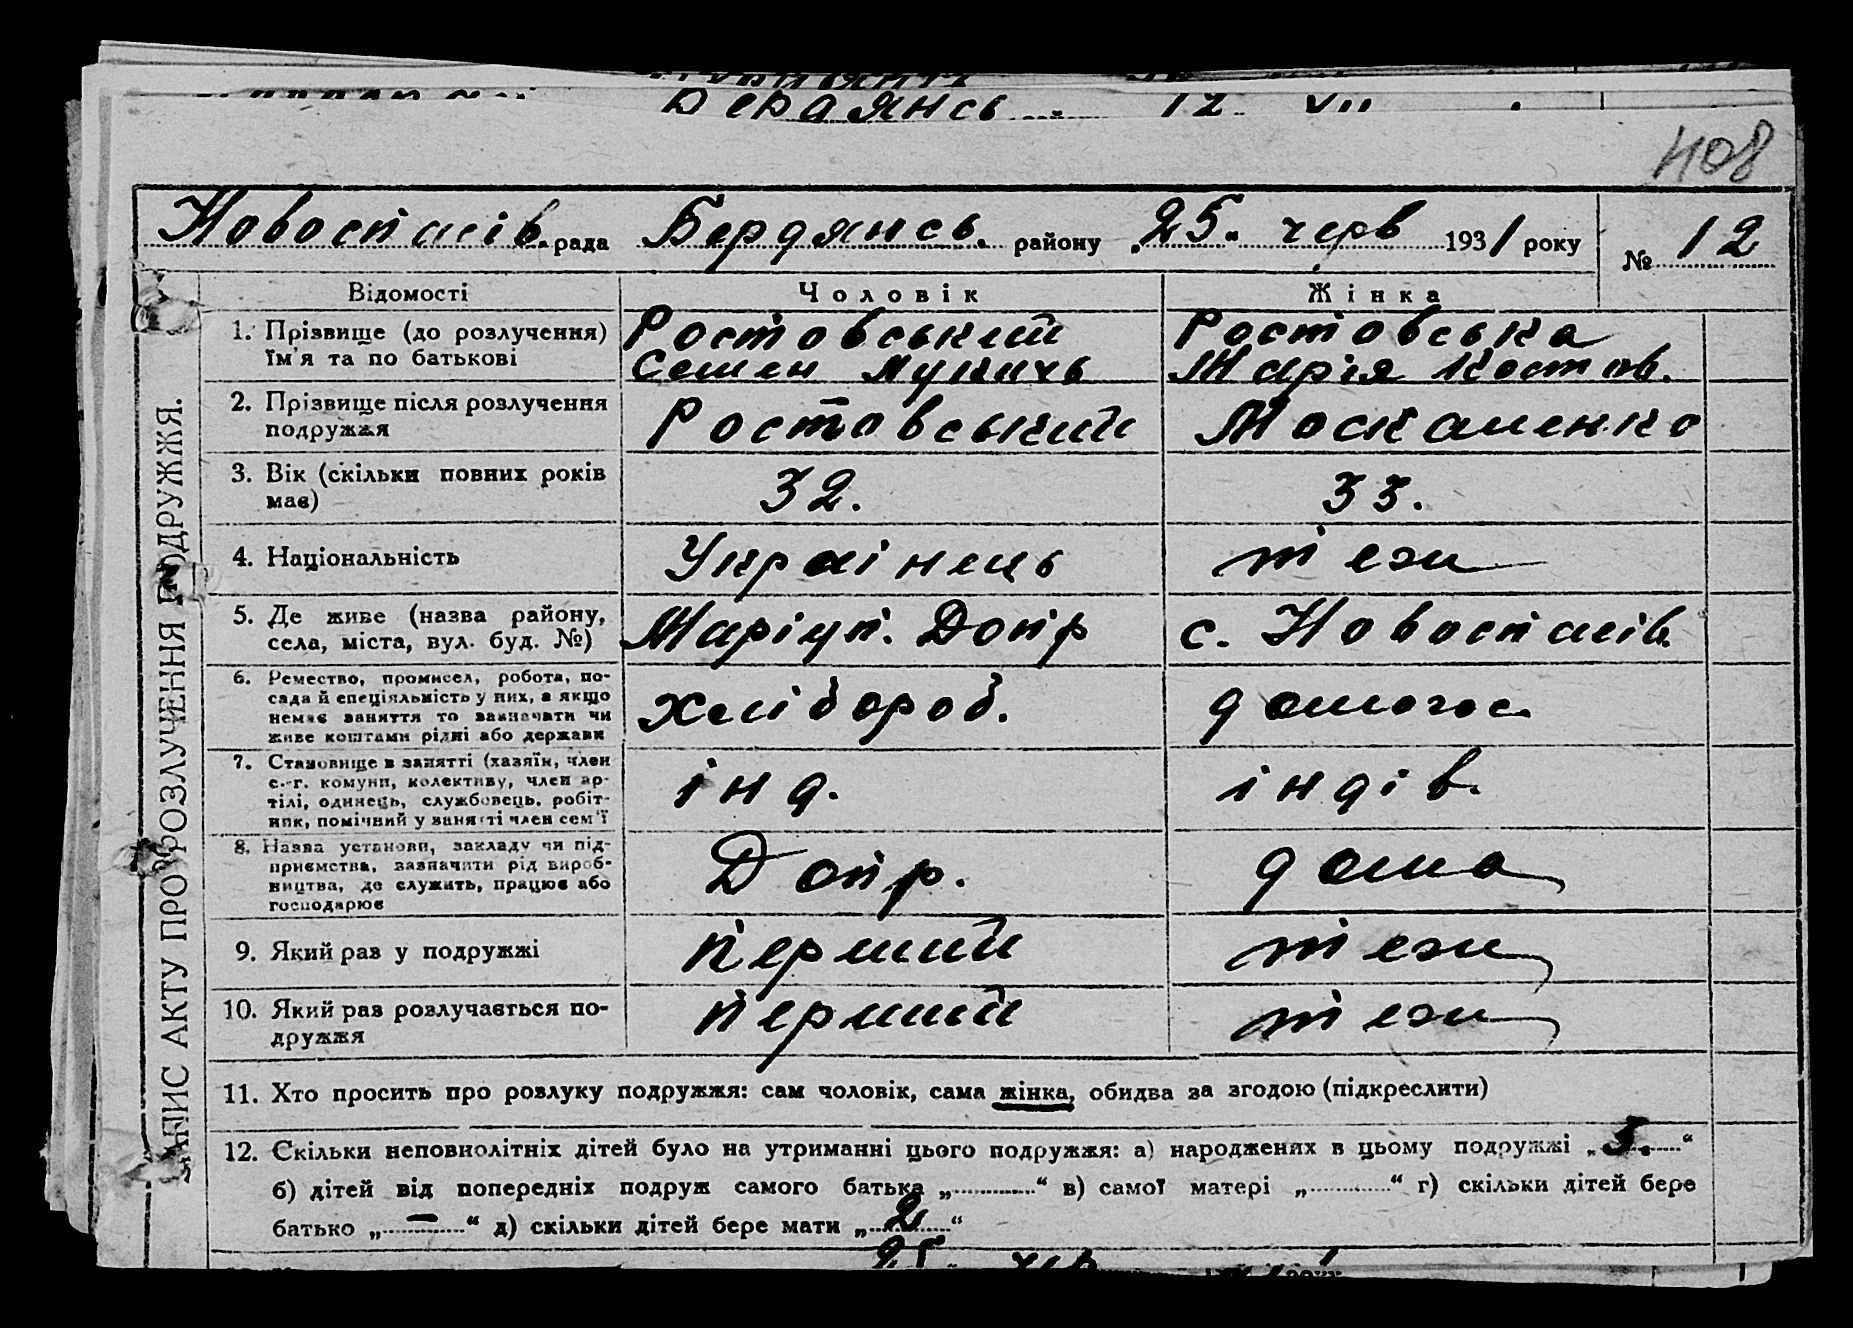 Бердянсь. 12 VII
408
Новоспасів. рада Бердянсь. району „25" черв 1931 року № 12
Відомості Чоловік Жінка
1. Прізвище (до розлучення) Ростовський Ростовська
їм'я та по батькові Семен Лукичь Марія Костов.
2. Прізвище після розлучення Ростовський Москаленко
подружжя
3. Вік (скільки повних років 32. 33.
має)
4. Національність Українець теж
5. Де живе (назва району, Маріуп. Допр с. Новоспасів.
села, міста, вул. буд. №)
6. Ремество, промисел, робота, по-
сада й спеціяльність у них, а якщо хлібороб. домогос.
немає заняття то зазначати чи
живе коштами рідні або держави
7. Становище в занятті (хазяїн, член
с.-г. комуни, колективу, член ар- інд. індів.
тілі, одинець, службовець, робіт-
ник, помічний у занятті член сем'ї
8. Назва установи, закладу чи під-
приємства, зазначити рід вироб- Допр. дома
ництва, де служить, працює або
господарює
9. Який рав у подружжі перший теж
10. Який рав розлучається по- перший теж
дружжя
11. Хто просить про розлуку подружжя: сам чоловік, сама жінка, обидва за згодою (підкреслити)
12. Скільки неповнолітніх дітей було на утриманні цього подружжя: а) народжених в цьому подружжі „ "
б) дітей від попередніх подруж самого батька „ " в) самої матері „ " г) скільки дітей бере
батько „ – " д) скільки дітей бере мати „ 2 "
ЗАПИС АКТУ ПРО РОЗЛУЧЕННЯ ПОДРУЖЖЯ.